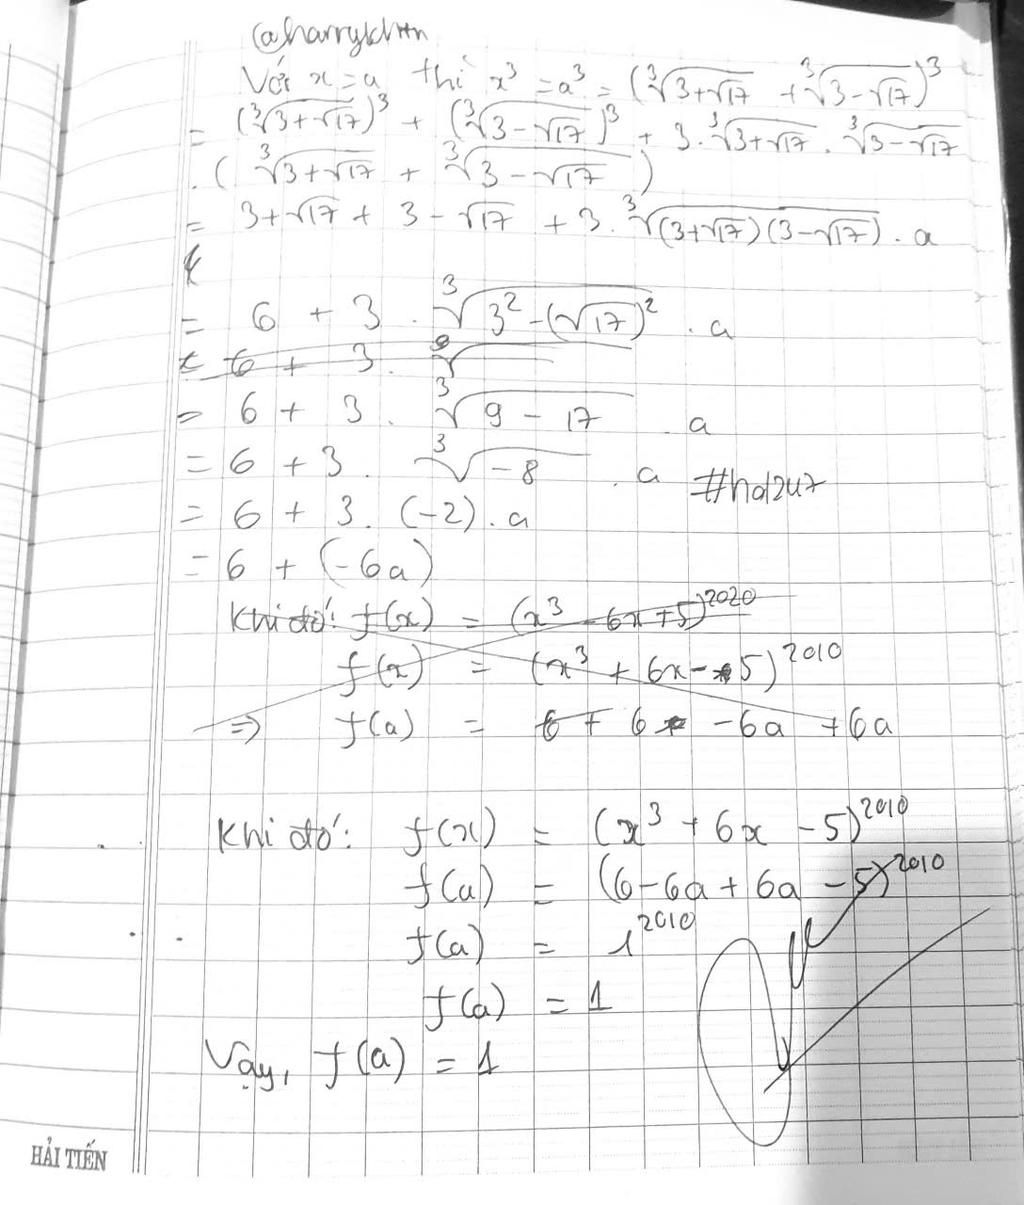 @harrykhtn
Với x = a thì x³ = a³ = (∛(3+√17) + ∛(3-√17))³
= (∛(3+√17))³ + (∛(3-√17))³ + 3.∛(3+√17) . ∛(3-√17)
. (∛(3+√17) + ∛(3-√17))
= 3+√17 + 3-√17 + 3.∛((3+√17)(3-√17)) . a
= 6 + 3 . ∛(3² - (√17)²) . a
6 + 3 .
= 6 + 3 . ∛(9 - 17) . a
= 6 + 3 . ∛(-8) . a #hd247
= 6 + 3. (-2) . a
= 6 + (-6a)
Khi đó: f(x) = (x³ - 6x + 5)²⁰²⁰
f(x) = (x³ + 6x - 5)²⁰¹⁰
=> f(a) = 6 + 6 - 6a + 6a
Khi đó: f(x) = (x³ + 6x - 5)²⁰¹⁰
f(a) = (6 - 6a + 6a - 5)²⁰¹⁰
f(a) = 1²⁰¹⁰
f(a) = 1
Vậy, f(a) = 1
HẢI TIẾN